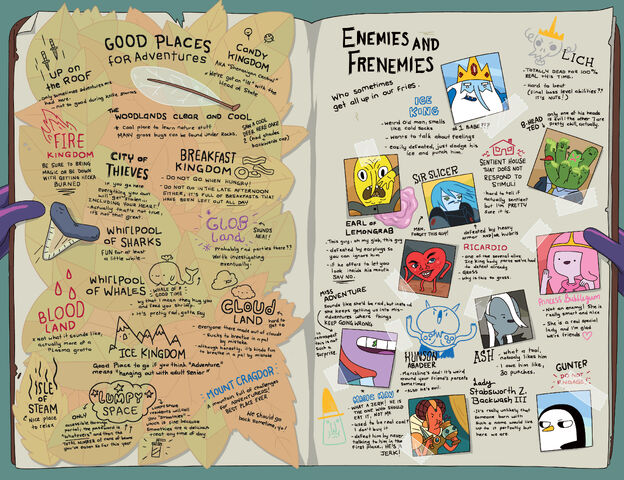 GOOD PLACES
for Adventures
CANDY
KINGDOM
AKA "Shenanigan Central"
We've got an "in" with the
Head of State
UP on
the ROOF
Only sometimes adventures are
had here.
not so good during knife storms
THE
WOODLANDS CLEAR and COOL
Cool place to learn nature stuff
MANY grass bugs can be found under Rocks.
FIRE
KINGDOM
BE SURE TO BRING
MAGIC OR BE DOWN
WITH GETTING HECKA
BURNED
CITY OF
THIEVES
If you go here
everything you own
get stolen
INCLUDING YOUR HEART!
actually that's not true,
it's not that great.
BREAKFAST
KINGDOM
- DO NOT GO WHEN HUNGRY!
- DO NOT GO IN THE LATE AFTERNOON
EITHER, IT'S FULL OF BREAKFASTS THAT
HAVE BEEN LEFT OUT ALL DAY
WHIRLPOOL
OF SHARKS
FUN for at least
a little while
GLOB
Land
SOUNDS
NEAT!
Probably rad parties there??
Worth investigating
eventually!
WHIRLPOOL
OF WHALES
WHALE OF A
GOOD TIME
- by that I mean they hug you
and feed you shrimp.
- It's pretty rad, gotta say
BLOOD
LAND
not what it sounds like,
actually more of a
Plasma grotto
CLOUD
LAND
hard to
get to
everyone there made out of clouds
Sucks to breathe a pal
although honestly, it's kinda fun
to breathe in a pal by mistake
ICE KINGDOM
Good Place to go if you think "Adventure"
means "hanging out with adult senior"
ISLE
of
STEAM
Nice place
to relax
LUMPY
SPACE
ONLY
accessible through
portal; the password is
"whatevers" and then the
MOUNT CRAGDOR:
A mountain full of challenges
and ADVENTURES!
BEST PLACE EVER
We should go
back sometime, yo!
ENEMIES AND
FRENEMIES
Who sometimes
get all up in our fries.
ICE
KING
- Weird old man, smells
like cold socks
- Wants to talk about feelings
- Easily defeated, just dodge his
ice and punch him.
#1 BABE???
LICH
- TOTALLY DEAD FOR 100%
REAL THIS TIME.
- Hard to beat
(final boss level abilities??
IT'S NUTS!)
only one of his heads
is evil the other 7 are
pretty chill, actually.
EARL OF
LEMONGRAB
- This guy: oh my glob, this guy
- defeated by earplugs so
you can ignore him
- if he offers to let you
look inside his mouth
SAY NO.
SIR SLICER
MAN,
FORGET THIS GUY!
- defeated by heavy
armor and/or hubris
SENTIENT HOUSE
THAT DOES NOT
RESPOND TO
STIMULI
- hard to tell if
actually sentient
but I'M PRETTY
sure it is.
RICARDIO
- one of the several alive
Ice King body parts we've had
to defeat already
- gross
- why is this so gross.
Princess Bubblegum
- Not an enemy! She is
really smart and nice
- She is a real special
lady and I'm glad
we're friends
MISS
ADVENTURE
Sounds like she'd be rad, but instead
she keeps getting us into mis-
adventures where things
KEEP GOING WRONG
HUNSON
ABADEER
- Marceline's dad; it's weird
around your friend's parents
sometimes
- also he's evil
ASH
- what a tool,
nobody likes him
- I owe him like,
30 punches
GUNTER
- DO NOT
ENGAGE!
MAGIC MAN
- WHAT A JERK! HE IS
THE ONE WHO SHOULD
EAT IT, NOT ME
- used to be real cool?
I don't buy it
- defeat him by never
talking to him in the
first place, HE'S A
JERK!
Lady
Stabsworth Z.
Backwash III
- It's really unlikely that
someone born with
such a name would live
up to it perfectly but
here we are